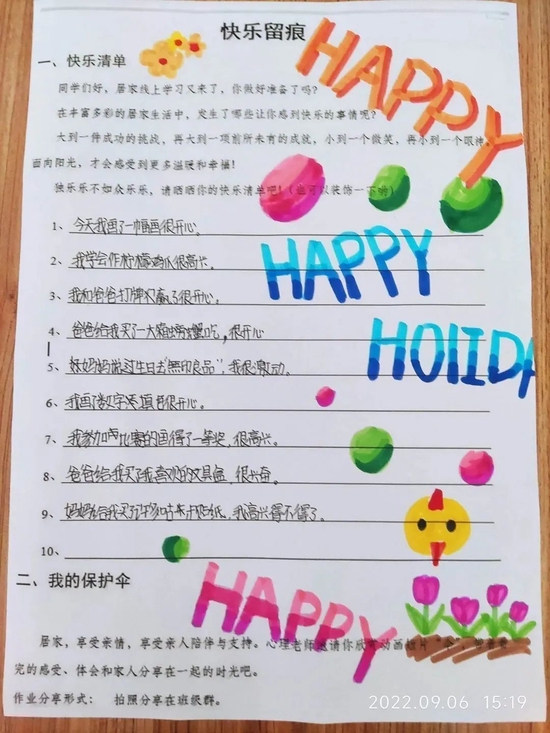 快乐留痕
HAPPY
一、快乐清单
同学们好，居家线上学习又来了，你做好准备了吗？
在丰富多彩的居家生活中，发生了哪些让你感到快乐的事情呢？
大到一件成功的挑战，再大到一项前所未有的成就，小到一个微笑，再小到一个眼神。
面向阳光，才会感受到更多温暖和幸福！
独乐乐不如众乐乐，请晒晒你的快乐清单吧！（也可以装饰一下哟）
1、今天我画了一幅画很开心。
HAPPY
2、我学会作柠檬水很高兴。
3、我和爸爸打牌又赢了很开心。
4、爸爸给我买了一大箱螃蟹吃，很开心
HOIIDA
5、妈妈说过生日去"無印良品"，我很激动。
6、我画了数字填色很开心。
7、我参加比赛的画得了一等奖，很高兴。
8、爸爸给我买了我喜欢的文具盒，很兴奋。
9、妈妈给我买了咕卡贴纸，我高兴得不得了。
10、
二、我的保护伞
HAPPY
居家，享受亲情，享受亲人陪伴与支持。心理老师邀请你欣赏动画短片"伞"，
完的感受、体会和家人分享在一起的时光吧。
作业分享形式： 拍照分享在班级群。
2022.09.06 15:19